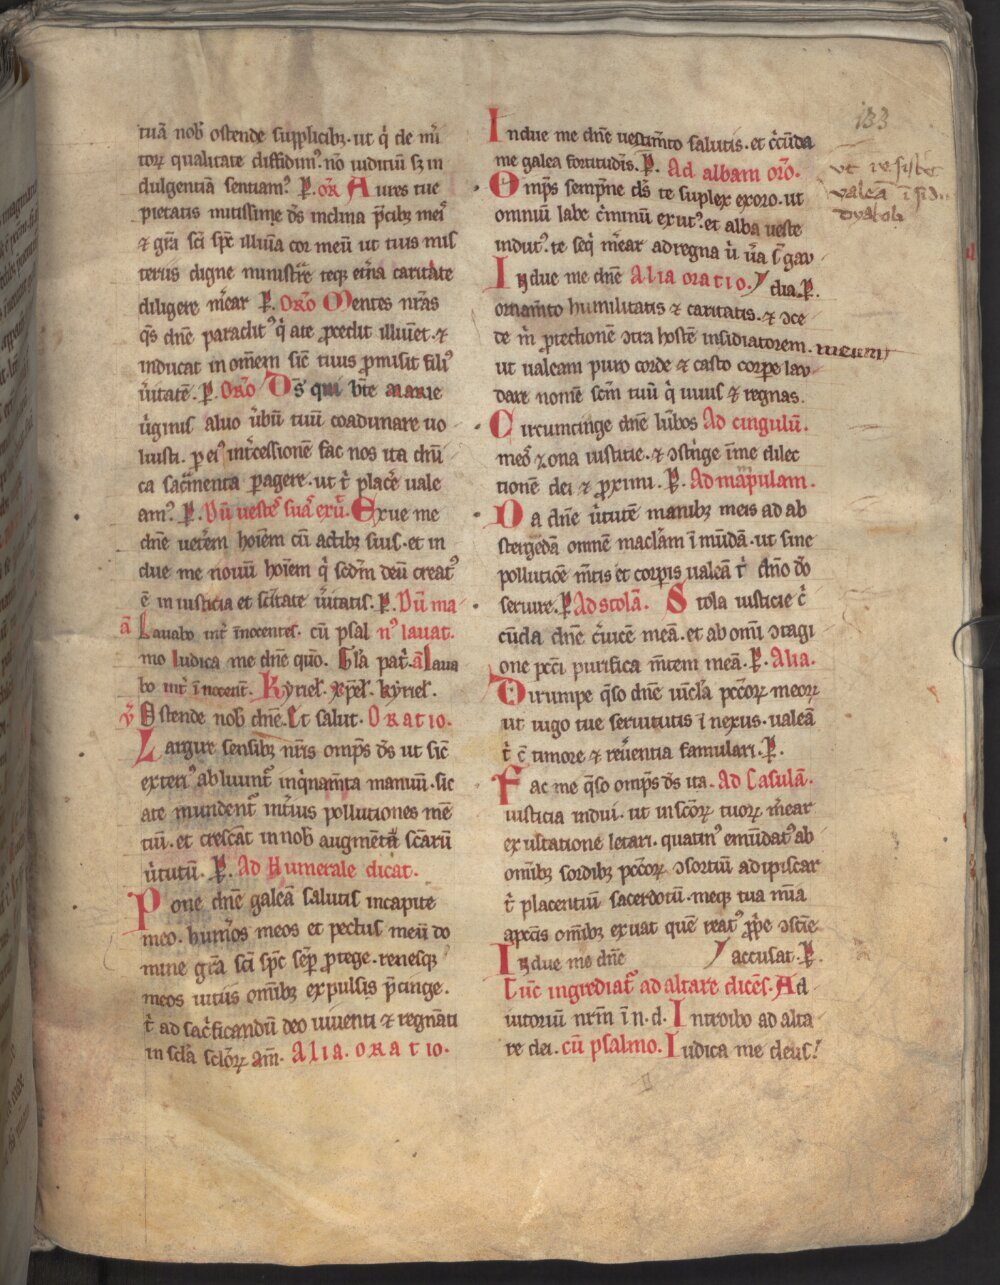 tuā nob̄ ostende supplicibꝫ. ut q̇ de m̄i
toꝝ qualitate diffidimꝰ. nō iudiciū sꝫ in
dulgentiā sentiamꝰ. P. or̄ Aures tue
pietatis mitissime d̄s inclina p̄cibꝫ meis
⁊ gr̄a sc̄i sp̄c illumīa cor meū ut tuis mis
teriis digne ministrare teqꝫ et̄na caritate
diligere m̄ear P. Oro Mentes nr̄as
q̄s dn̄e paraclitꝰ q̇ a te ꝓcedit illumīet. ⁊
inducat in om̄em sic̄ tuus ꝓmisit filiꝰ
ūitatē. P. Oro D̄s qui bt̄e marie
ūginis aluo ūbū tuū coadunare uo
luisti. ꝑ eiꝰ int̄cessionē fac nos ita dn̄i
ca sac̄menta ꝑagere. ut t̄ place᷒ uale
amꝰ. P. Dū uestes suas exū. Exue me
dn̄e ueterem hoīem cū actibꝫ suis. et in
due me nouū hoīem q̇ scd̄m deū creatꝰ
ē in iusticia et sc̄itate ūitatis. P. Dū ma
ā Lauabo int̄ īnocentes. cū psal nꝰ lauat.
mo Iudica me dn̄e quō. Gl̄a pat̄. ā Laua
bo int̄ īnocent̄. Kyriel̄. xp̄el̄. kyriel̄.
v̄ Ostende nob̄ dn̄e. Et salut. Oratio.
Largire sensibꝫ nr̄is omp̄s d̄s ut sic̄
exteriꝰ abluunt̄ inq̇nam̄ta manuū. sic
a te mundent̄ int̄ius pollutiones mē
tiū. et crescat in nob̄ augmētū sc̄arū
ūtutū. P. Ad humerale dicat.
Pone dn̄e galeā salutis in capite
meo. hum̄os meos et pectus meū do
mine gr̄a sc̄i sp̄c semꝑ ꝓtege. renesqꝫ
meos uitiis om̄ibꝫ expulsis p̄cinge.
t̄ ad sac̄ficandū deo uiuenti ⁊ regnāti
in scl̄a scl̄oꝝ am̄. Alia. oratio.
Indue me dn̄e uestim̄to salutis. et c̄cūda
me galea fortitudīs. P. Ad albam oro.
Omp̄s sempn̄e d̄s te suplex exoro. ut
omniū labe c̄minū exutꝰ. et alba ueste
indutꝰ. te seq̇ m̄ear ad regna ū ūa s̄t gau
Indue me dn̄e Alia oratio. / dia. P.
ornam̄to humilitatis ⁊ caritatis. ⁊ ↄce
de m̄ ꝓtectionē ↄtra hostē insidiatorem. meum
ut ualeam puro corde ⁊ casto corꝑe lau
dare nomē scm̄ tuū q̇ uiuis ⁊ regnas.
Circumcinge dn̄e lūbos Ad cingulū.
meos zona iusticie. ⁊ ↄstinge ī me dilec
tionē dei ⁊ ꝓximi. P. Ad mapulam.
Da dn̄e ūtutē manibꝫ meis ad ab
stergēdā omnē maclām īmūdā. ut sine
pollutiōe m̄tis et corꝑis ualeā t̄ dn̄o d̄o
seruire. P. Ad stolā. Stola iusticie c̄
cūda dn̄e c̄uicē meā. et ab om̄i ↄtagi
one pc̄ci purifica m̄tem meā. P. Alia.
Dirumpe q̄so dn̄e uīcl̄a pcc̄oꝝ meoꝝ
ut iugo tue seruitutis īnexus. ualeā
t̄ c̄ timore ⁊ reūentia famulari. P.
Fac me q̄so omp̄s d̄s ita. Ad Casulā.
iusticia indui. ut in sc̄oꝝ tuoꝝ m̄ear
exultatione letari. quatinꝰ emūdatꝰ ab
om̄ibꝫ sordibꝫ pcc̄oꝝ ↄsortiū adipiscar
t̄ placentiū sacerdotū. meqꝫ tua mīa
a pcc̄is om̄ibꝫ exuat quē reatꝰ ꝓp̄e ↄsciē
Indue me dn̄e / accusat. P.
Tūc ingrediat̄ ad altare dicēs. Ad
iutoriū nr̄m ī n. d. Introibo ad alta
re dei. cū psalmo. Iudica me deus.
133
dyaboli